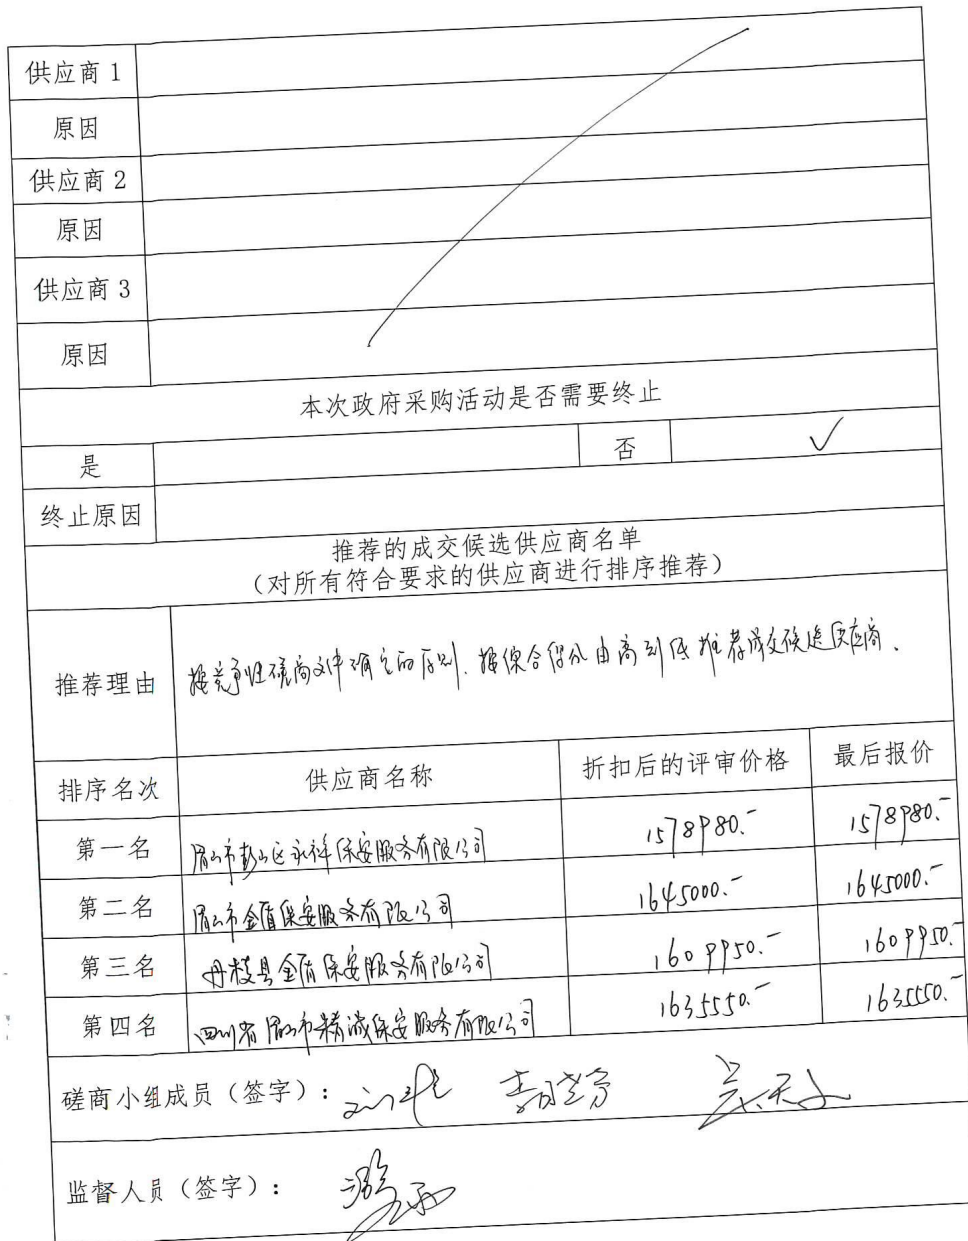 供应商1
原因
供应商2
原因
供应商3
原因
本次政府采购活动是否需要终止
是 否 ✓
终止原因
推荐的成交候选供应商名单
（对所有符合要求的供应商进行排序推荐）
推荐理由 按竞争性磋商文件确定的原则、按综合得分由高到低推荐成交候选供应商、
排序名次 供应商名称 折扣后的评审价格 最后报价
第一名 眉山市彭山区永祥保安服务有限公司 1578980.- 1578980.-
第二名 眉山市金盾保安服务有限公司 1645000.- 1645000.-
第三名 丹棱县金盾保安服务有限公司 1609950.- 1609950.-
第四名 四川省眉山市精诚保安服务有限公司 1635550.- 1635550.-
磋商小组成员（签字）：
监督人员（签字）：